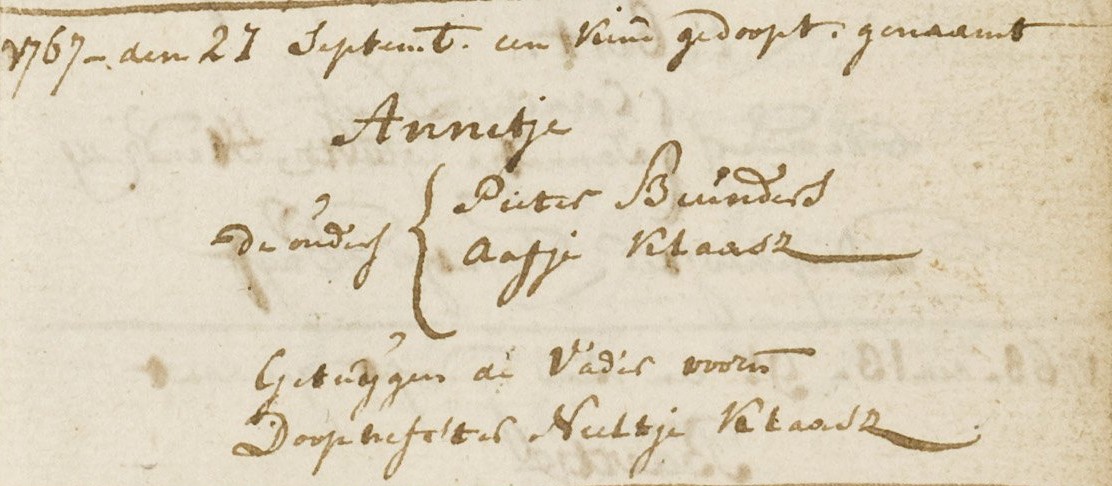 1767 - den 27 Septemb. een Kind gedoopt. genaamt
Annitje
de ouders { Pieter Beunders
Aafje Klaasz
Getuijgen de Vader voorn
Doophefster Neeltje Klaasz